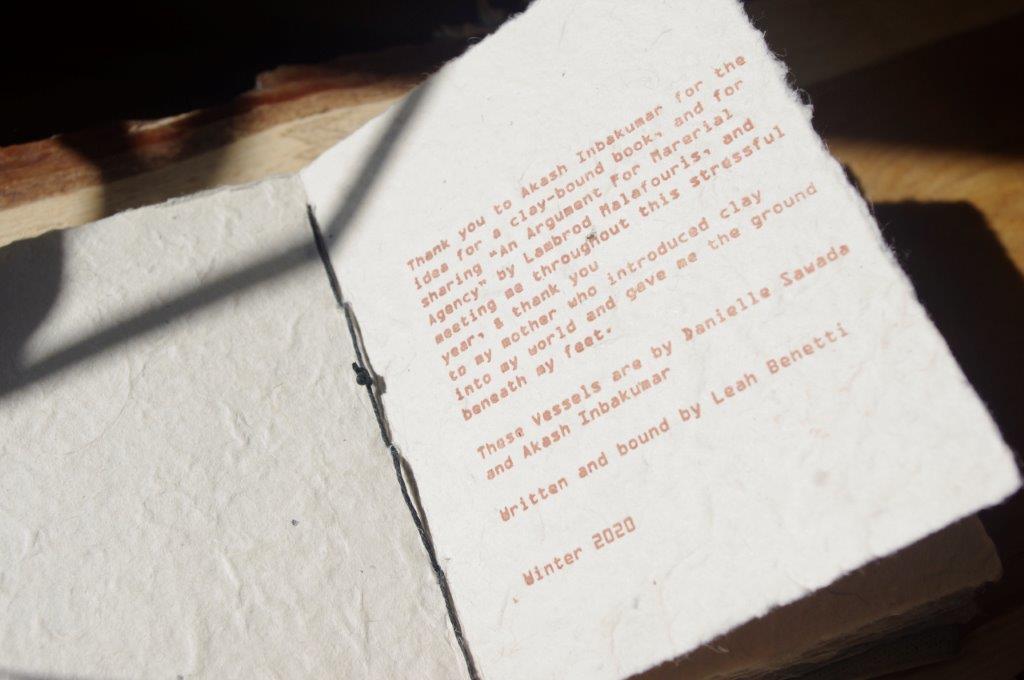 Thank you to Akash Inbakumar for the
idea for a clay-bound book, and for
sharing "An Argument For Marerial
Agency" by Lambrod Malafouris, and
meeting me throughout this stressful
year, & thank you
to my mother who introduced clay
into my world and gave me the ground
beneath my feet.
These Vessels are by Danielle Sawada
and Akash Inbakumar
Written and bound by Leah Benetti
Winter 2020